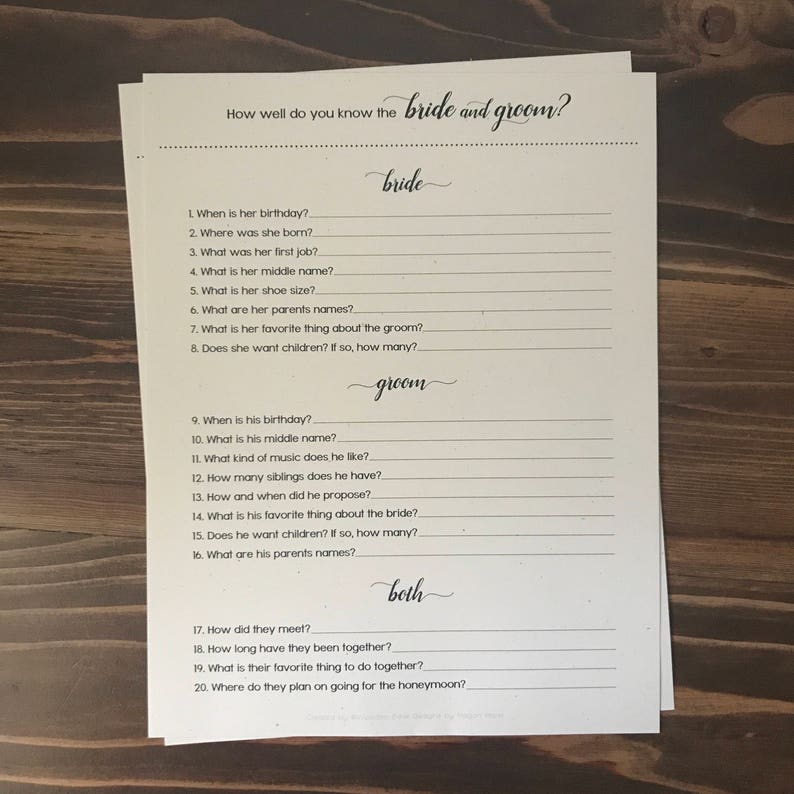 How well do you know the bride and groom?
bride
1. When is her birthday?
2. Where was she born?
3. What was her first job?
4. What is her middle name?
5. What is her shoe size?
6. What are her parents names?
7. What is her favorite thing about the groom?
8. Does she want children? If so, how many?
groom
9. When is his birthday?
10. What is his middle name?
11. What kind of music does he like?
12. How many siblings does he have?
13. How and when did he propose?
14. What is his favorite thing about the bride?
15. Does he want children? If so, how many?
16. What are his parents names?
both
17. How did they meet?
18. How long have they been together?
19. What is their favorite thing to do together?
20. Where do they plan on going for the honeymoon?
Created by